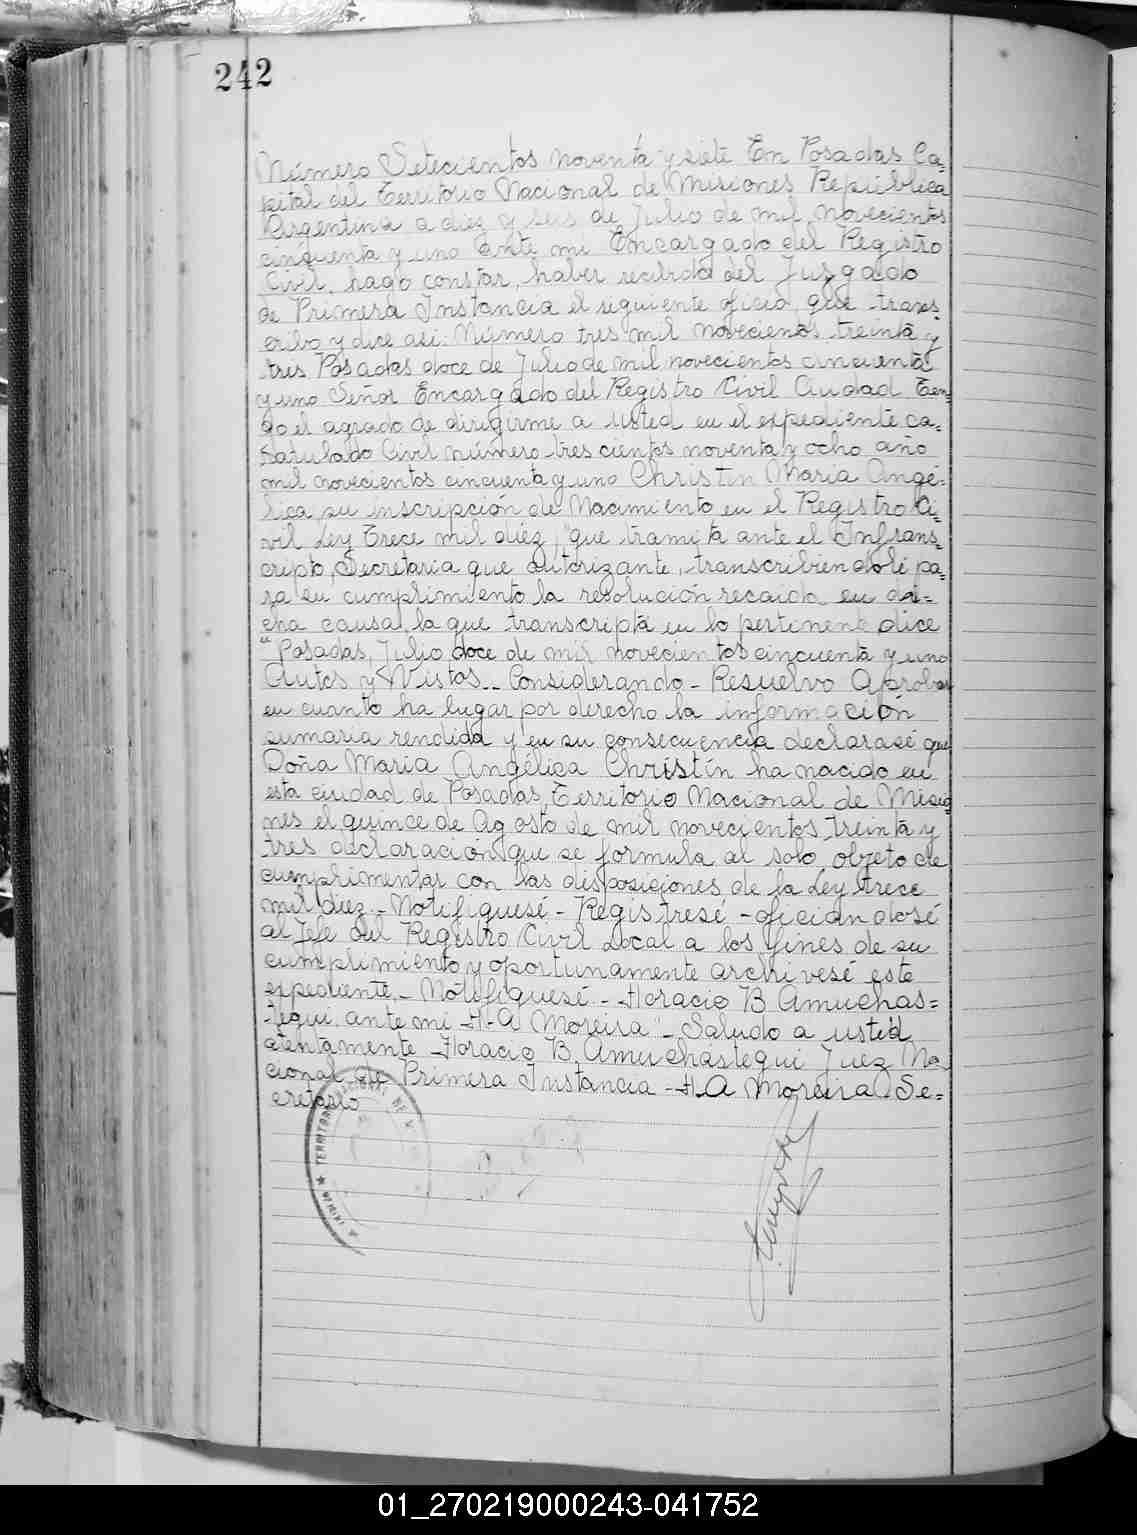 242
Número Setecientos noventa y siete En Posadas Ca-
pital del Territorio Nacional de Misiones República
Argentina a diez y seis de Julio de mil novecientos
cincuenta y uno Ante mi Encargado del Registro
Civil, hago constar, haber recibido del Juzgado
de Primera Instancia el seguiente oficio que trans-
cribo y dice asi: Número tres mil novecientos treinta y
tres Posadas doce de Julio de mil novecientos cincuenta
y uno Señor Encargado del Registro Civil Ciudad Ten-
go el agrado de dirigirme a usted en el expediente ca-
ratulado Civil número tres cientos noventa y ocho año
mil novecientos cincuenta y uno Christin Maria Angé-
lica su inscripción de Nacimiento en el Registro Ci-
vil Ley Trece mil diéz, "que tramita ante el Infrans-
cripto, Secretaria que autorizante, transcribiendole pa-
ra su cumplimiento la resolución recaida en di-
cha causa, la que transcripta en lo pertinene dice
"Posadas, Julio doce de mil novecientos cincuenta y uno
Autos y Vistos.. Considerando - Resuelvo Aprobar
en cuanto ha lugar por derecho la información
sumaria rendida y en su consecuencia declarasé que
Doña Maria Angélica Christín ha nacido en
esta ciudad de Posadas, Territorio Nacional de Misio-
nes el quince de Agosto de mil novecientos treinta y
tres declaración que se formula al solo objeto de
cumplimentar con las disposiciones de la Ley trece
mil diez - Notifiquesé - Registresé - oficiandosé
al Jefe del Registro Civil Local a los fines de su
cumplimiento y oportunamente archivesé este
expediente. - Notifiquesé - Horacio B Amuchas=
tegui ante mi H-A Moreira" - Saludo a usted
atentamente Horacio B. Amuchastegui Juez Na
cional de Primera Instancia - H.A Moreira Se=
cretario
★ TERRITORIO
01_270219000243-041752